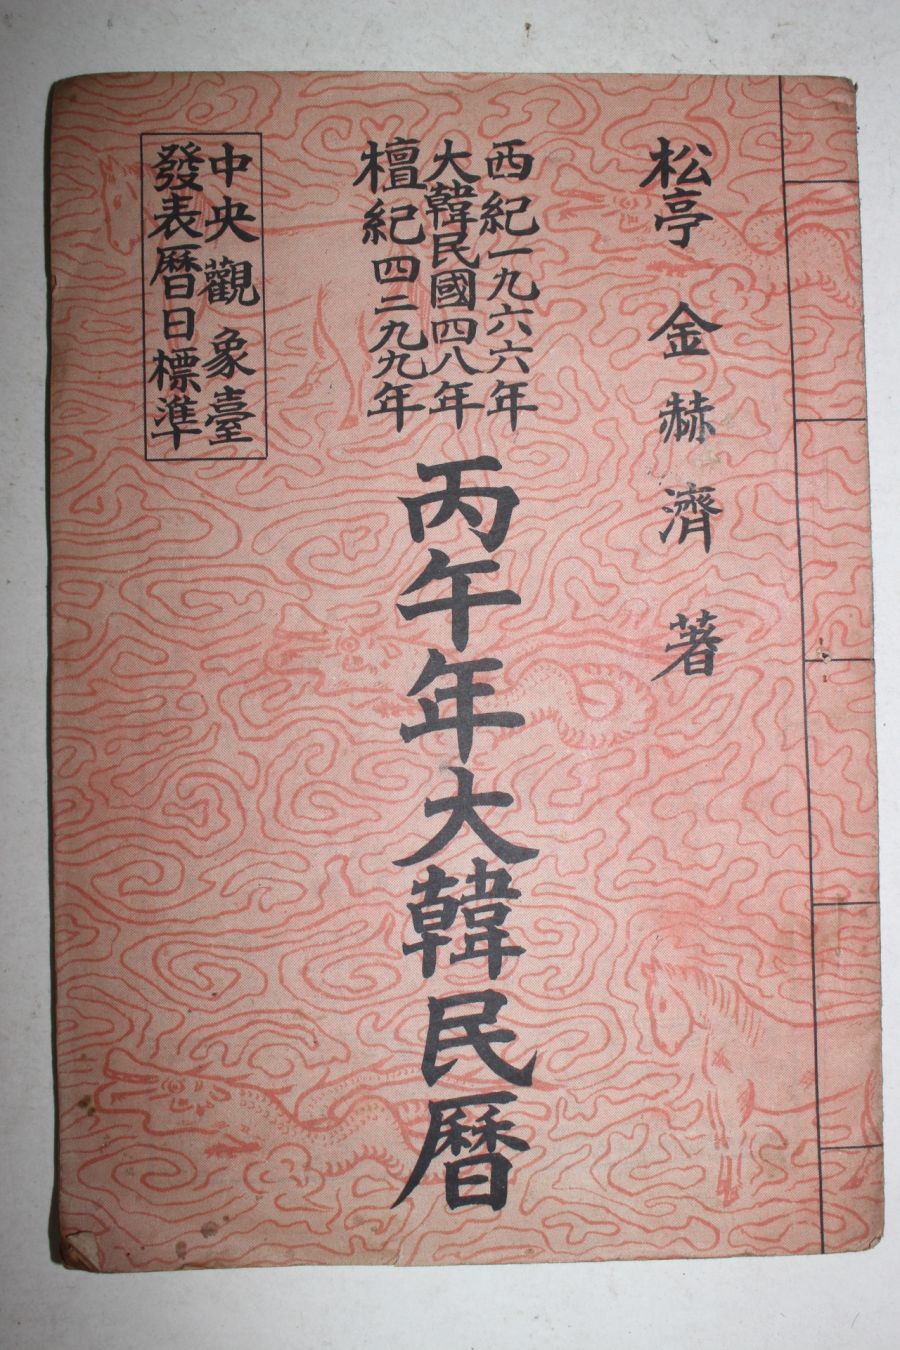 松亭 金赫濟 著
西紀一九六六年
大韓民國四八年
檀紀四二九九年
丙午年大韓民曆
中央觀象臺
發表曆日標準